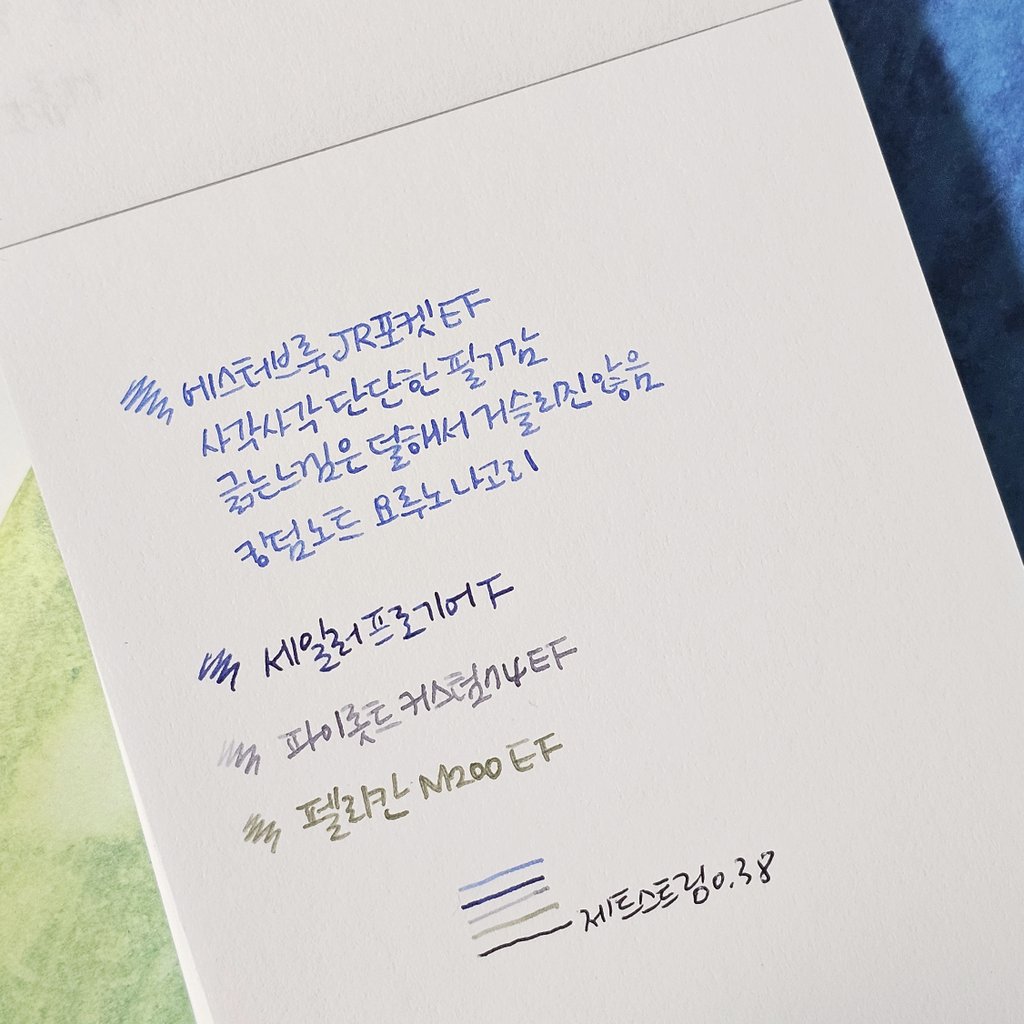 에스터브룩 JR포켓 EF
사각사각 단단한 필기감
긁는느낌은 덜해서 거슬리진않음
킹덤노트 요루노나고리
세일러프로기어 F
파이롯트 커스텀74 EF
펠리칸 M200 EF
제트스트림 0.38